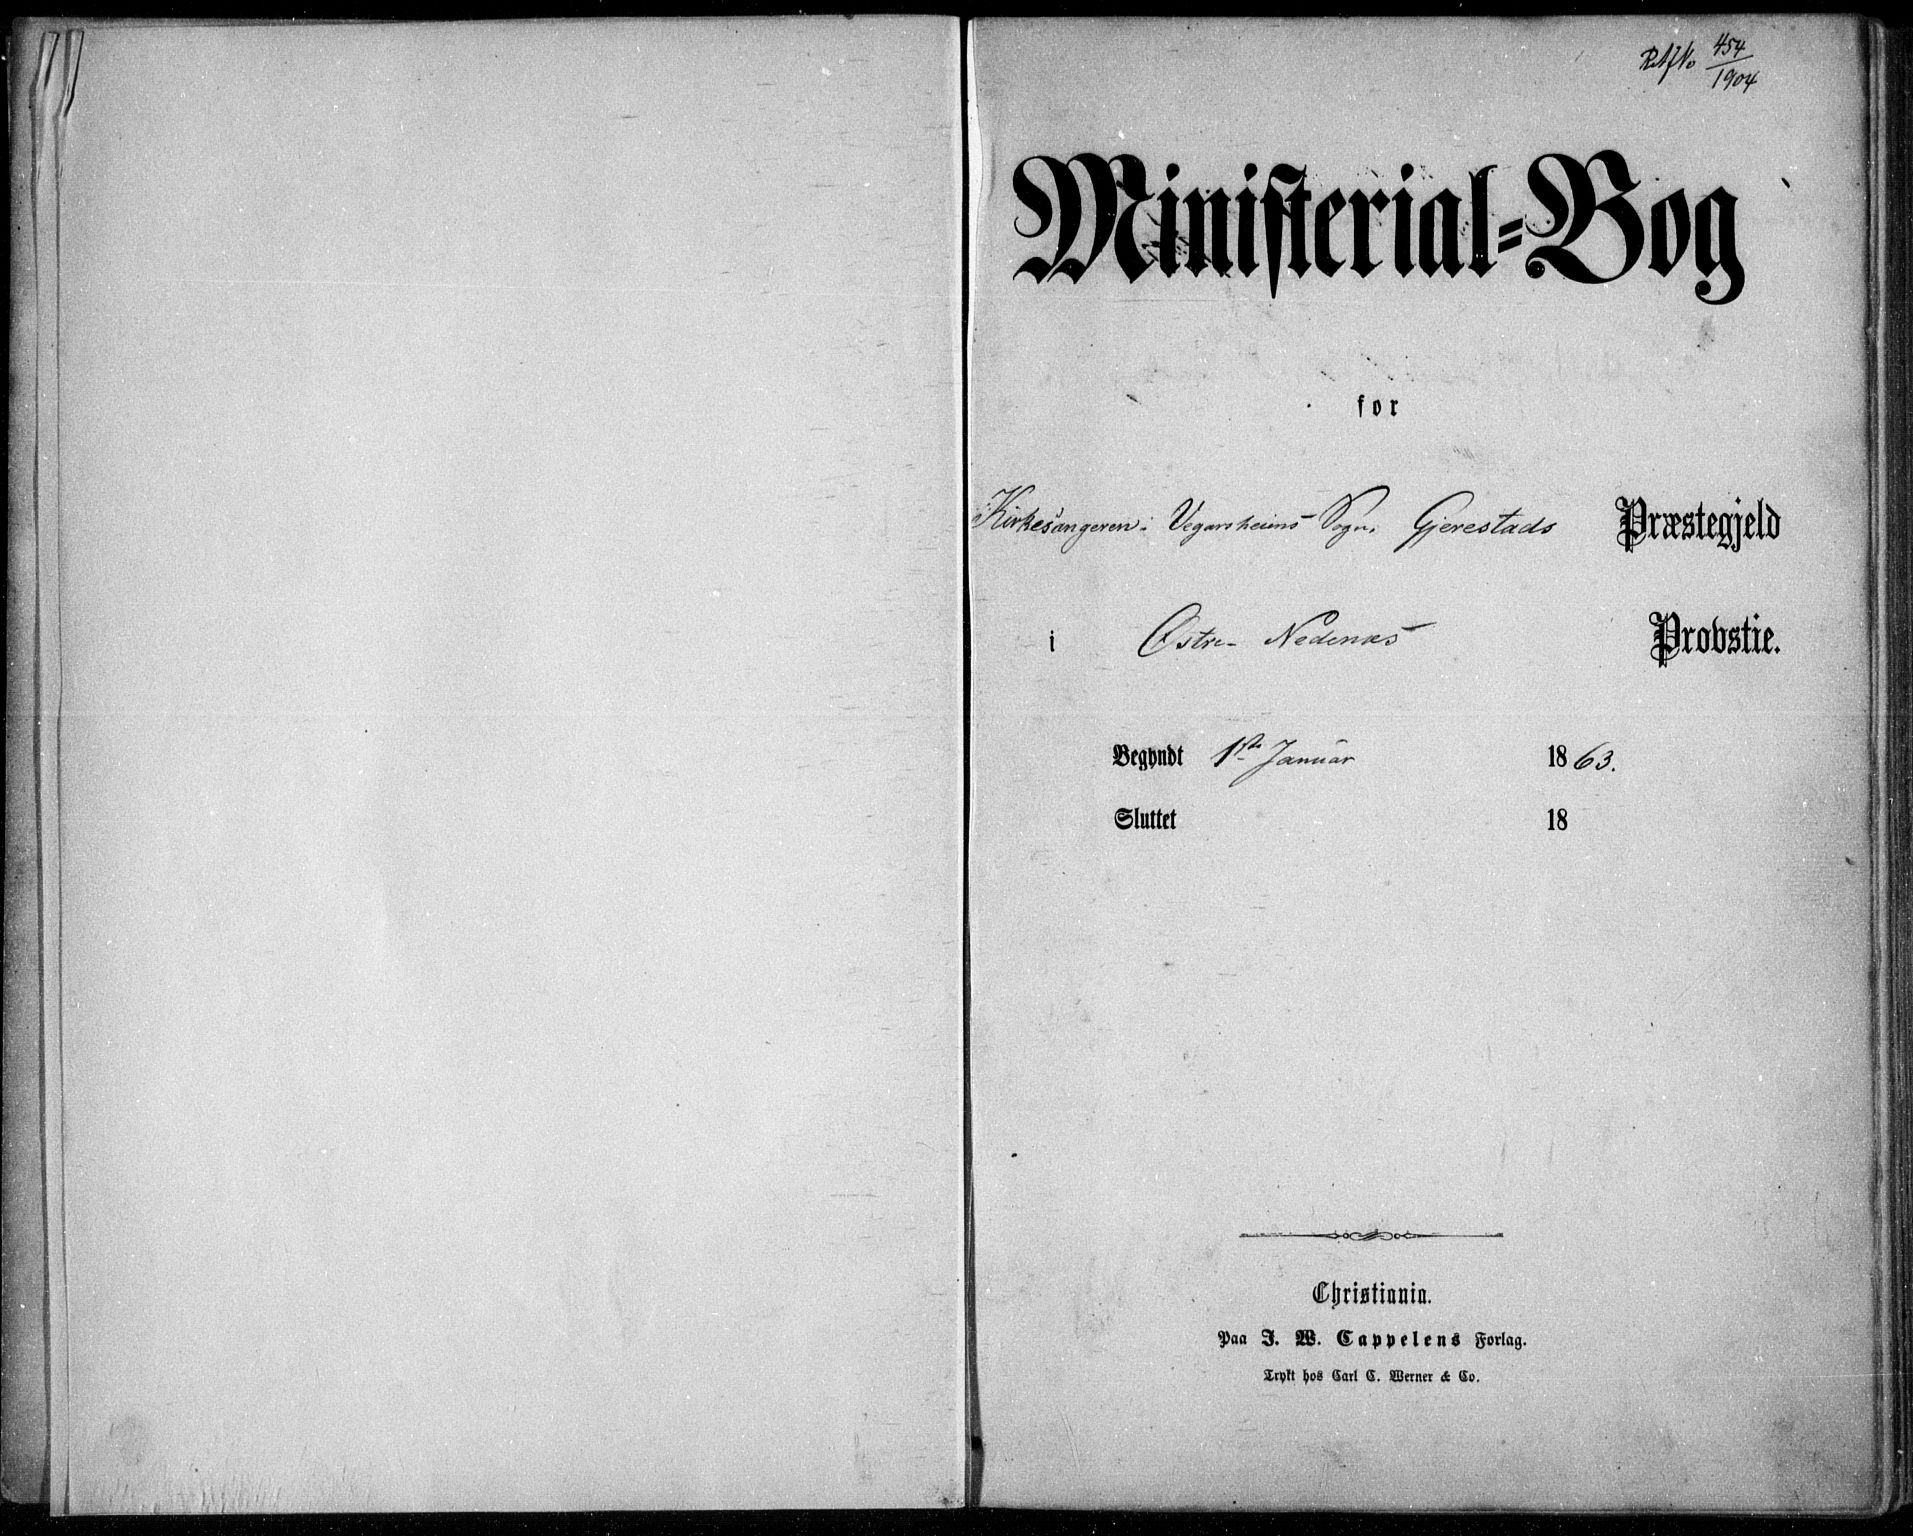 454
1904
Ministerial=Bog
for
Kirkesangeren i Vegarsheiens Sogn, Gjerestads Præstegjeld
i Østre Nedenæs Provstie.
Begyndt 1ste Januar 1863.
Sluttet 18
Christiania.
Paa J. W. Cappelens Forlag.
Trykt hos Carl C. Werner & Co.